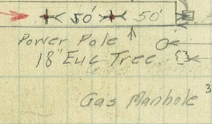 50' 50'
Power Pole
18" Euc Tree
Gas Manhole 3